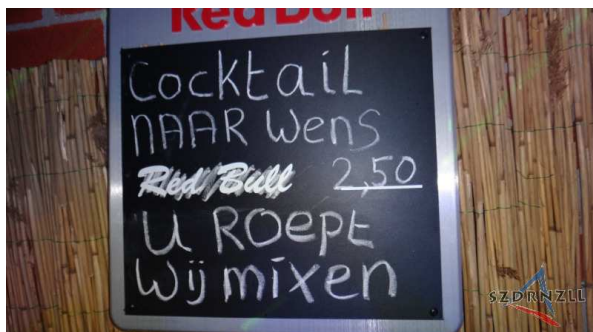 Red Bull
Cocktail
NAAR Wens
Red Bull 2,50
U ROEPT
Wij mixen
SZDRNZLL